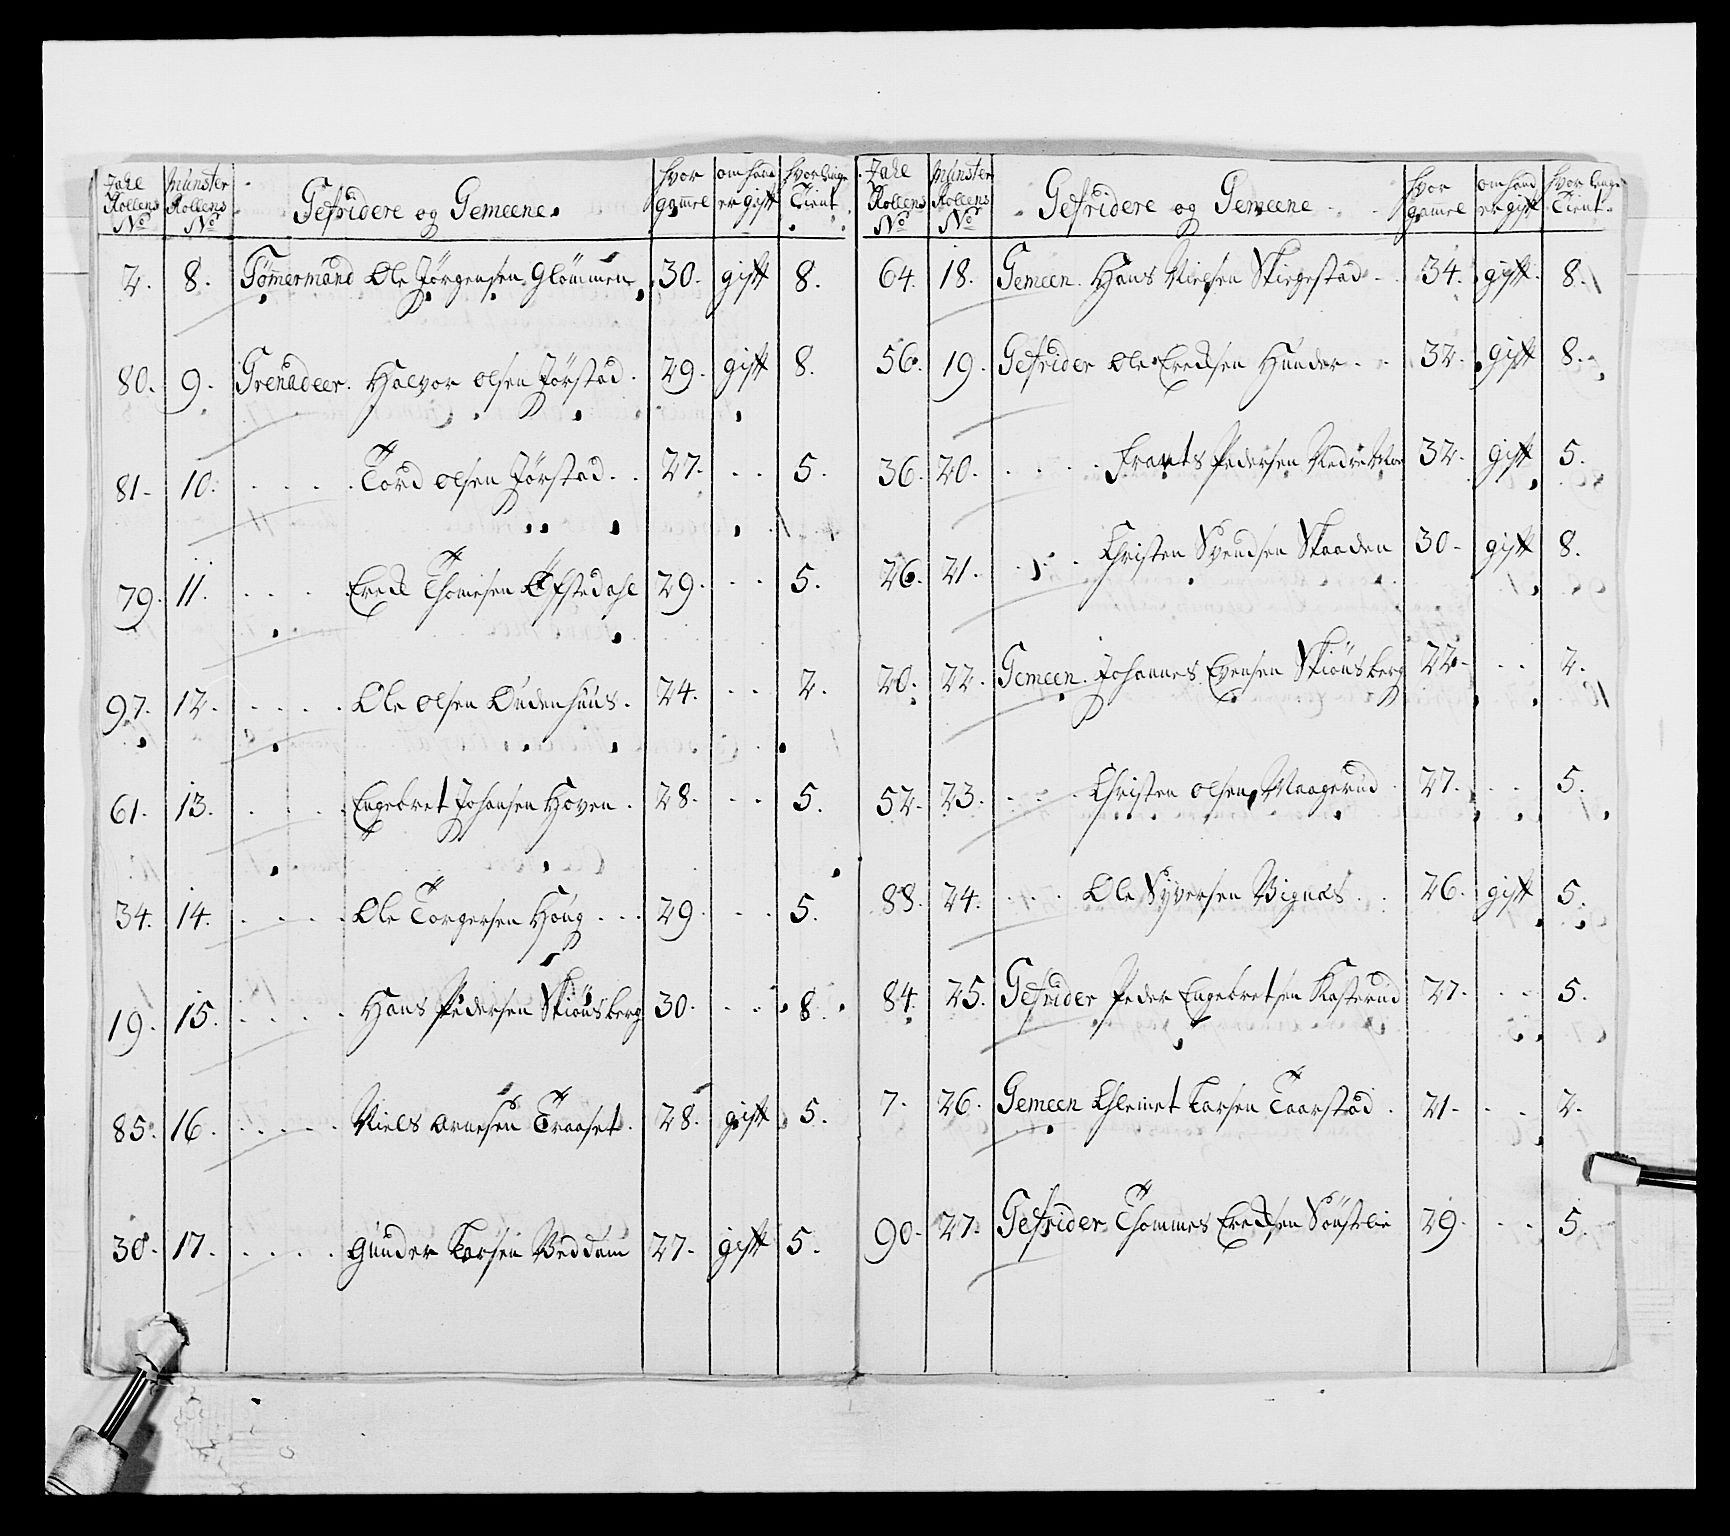 Zahl Rollens No | Munster Rollens No | Gefridere og Gemeene. | hvor gamel | om hand er gift | hvor længe Tient
2. | 8. | Tømermand Ole Jørgensen Glommen | 30. | gift | 8.
80. | 9. | Grenadeer. Halvor Olsen Jørstad. | 29. | gift | 8.
81. | 10. | . . . . Tord Olsen Jørstad. | 27. | . . | 5.
79. | 11. | . . . . Erech Thomesen | 29. | . . | 5.
97. | 12. | . . . . Ole Olsen | 24. | . . | 2.
61. | 13. | . . . . Engebret Johansen Hoven. | 28. | . . | 5.
34. | 14. | . . . . Ole Torgersen Houg | 29. | . . | 5.
19. | 15. | . . . . Hans Pedersen Skiønsberg | 30. | . . | 8.
85. | 16. | . . . . Niels Arnesen Traaset. | 28. | gift | 5.
30. | 17. | . . . . Gunder Larsen Veddum | 27. | gift | 5.
Zahl Rollens No | Munster Rollens No | Gefridere og Gemeene | hvor gamel | om hand er gift | hvor længe Tient.
64. | 18. | Gemeen. Hans Nielsen Skiegestad | 34. | gift. | 8.
56. | 19. | Gefrider Ole Erechsen Hunder | 32. | gift | 8.
36. | 20. | . . . . Frants Pedersen | 32. | gift | 5.
26. | 21. | . . . Christen Svendsen Skaaden | 30. | gift | 8.
20. | 22. | Gemeen. Johannes Evensen Skiønsberg | 22. | . . | 2.
52. | 23. | . . . Christen Olsen Maagerud | 27. | . . | 5.
88. | 24. | . . . Ole Syversen Vignes | 26. | gift | 5.
84. | 25. | Gefrider Peder Engebretsen Kasterud | 27. | . . | 5.
7. | 26. | Gemeen Clemet Larsen Taarstad. | 21. | . . | 2.
90. | 27. | Gefrider Thommes Erechsen Sønstebie | 29. | . . | 5.